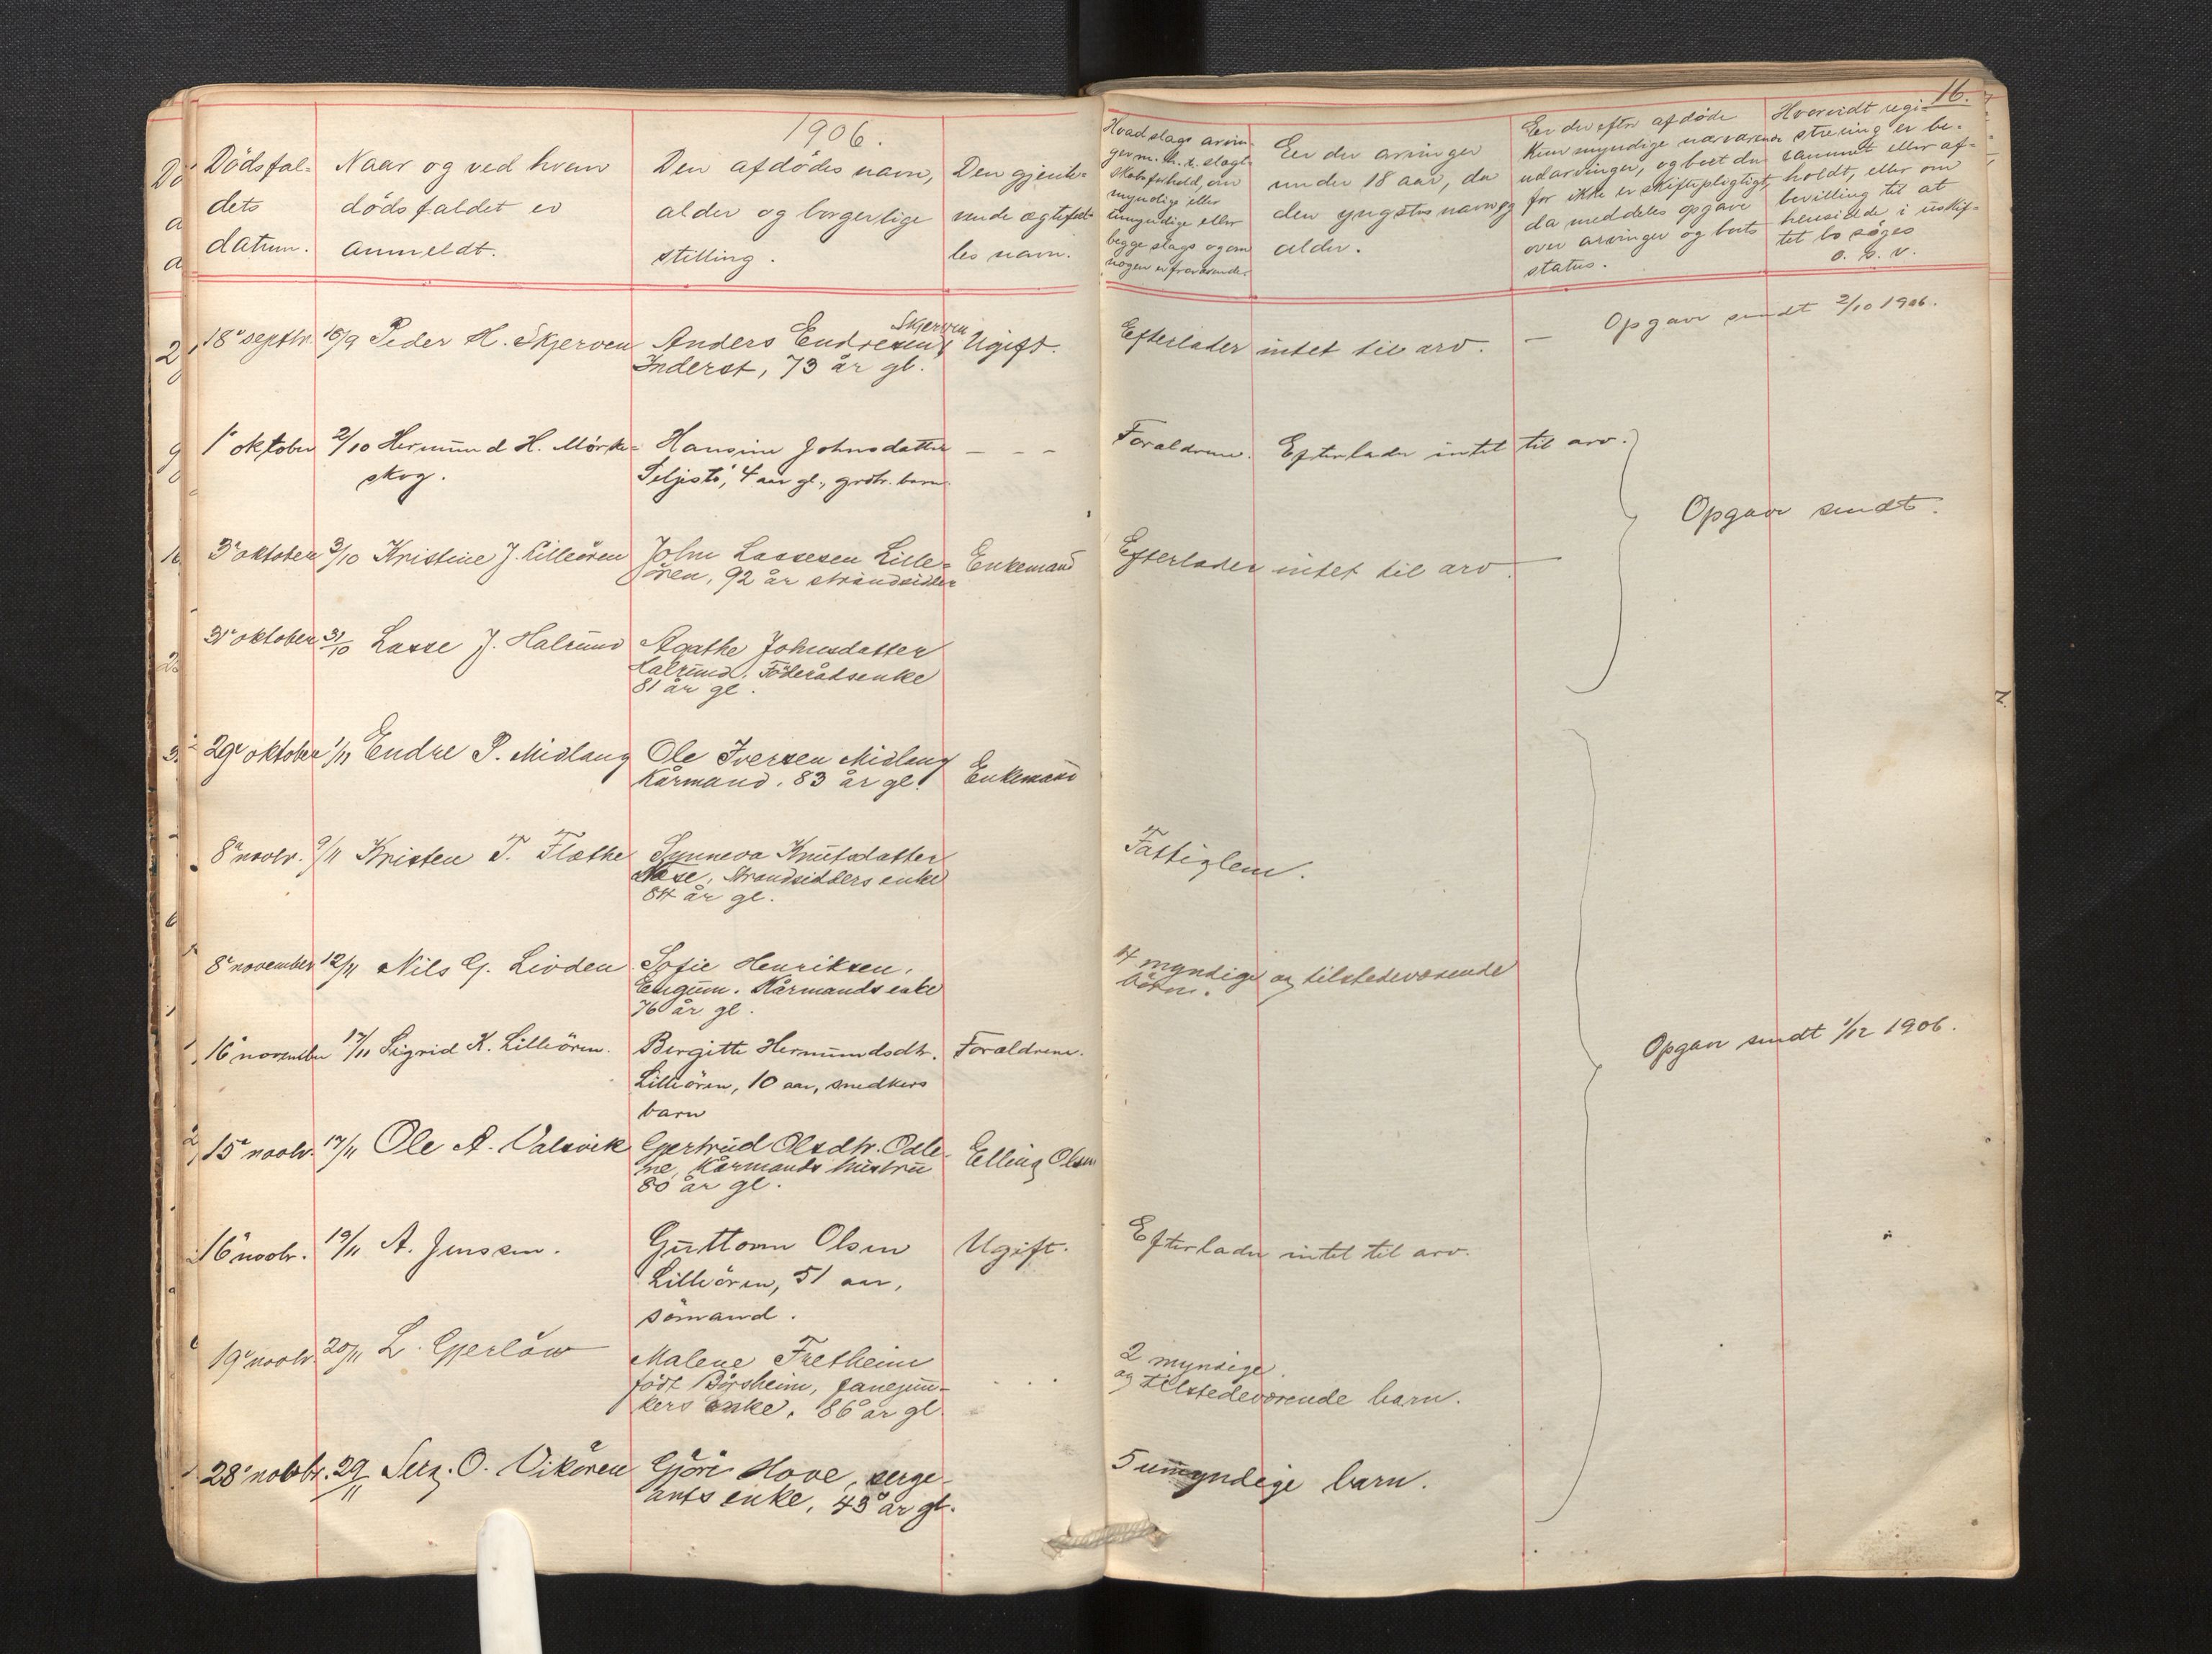 1906.
16.
Dödsfal-
dets
datum.
Naar og ved hvem
dödsfaldet er
anmeldt.
Den afdödes navn,
alder og borgerlige
stilling.
Den gjenle-
vende ægtefæl-
les navn.
Hvad slags arvin-
ger m. h. t. slægt-
skabsforhold, om
myndige eller
umyndige eller
begge slags og om
nogen er fraværende.
Er der arvinger
under 18 aar, da
den yngstes navn og
alder.
Er der efter afdöde
kun myndige nærværende
udarvinger, og boet der
for ikke er skiftepligtigt,
da meddeles opgave
over arvinger og boets
status.
Hvorvidt regi-
strering er be-
rammet eller af-
holdt, eller om
bevilling til at
hensidde i uskif-
tet bo söges
o. s. v.
18' septbr. 18/9 Peder H. Skjerven Anders Endresen Skjerven Ugift. Efterlader intet til arv. — Opgave sendt 2/10 1906.
Inderst, 73 år gl.
1' oktober 2/10 Hermund H. Mörke- Hansine Johnsdatter — — — Forældrene. Efterlader intet til arv.
skog. Teljestö, 4 aar gl., grdbr. barn.
Opgave sendt.
3' oktober 3/10 Kristine J. Lilleören John Lassesen Lille- Enkemand Efterlader intet til arv. —
ören, 92 år strandsidder
31' oktober 31/10 Lasse J. Halrund Agathe Johnsdatter
Halrund. Föderådsenke
81 år gl.
29' oktober 1/11 Endre P. Midlang Ole Iversen Midlang Enkemand
Kårmand. 83 år gl.
8' novbr. 9/11 Kristen T. Flæthe Synneva Knutsdatter Fattiglem.
Næse, Strandsidders enke
84 år gl.
8' november 12/11 Nils G. Livden Sofie Henriksen, 4 myndige og tilstedeværende
Engum. Kårmands enke börn.
76 år gl.
16' november 17/11 Sigrid K. Lilleören. Bergitte Hermundsdtr. Forældrene. Opgave sendt 1/12 1906.
Lilleören, 10 aar, snedkers
barn
15' novbr. 17/11 Ole A. Valsvik Gjertrud Olsdtr. Odle- Elling Olsen
ne, Kårmands hustru
80 år gl.
16' novbr. 19/11 A. Jenssen. Guttorm Olsen Ugift. Efterlader intet til arv.
Lilleören, 51 aar,
sömand.
19' novbr. 20/11 L. Gjerlöw Malene Fretheim 2 myndige
född Börsheim, fanejun- og tilstedeværende barn.
kers enke. 86 år gl.
28' novbr. 29/11 Serg. O. Vikören Gjöri Hove, serge- 5 umyndige barn.
ants enke, 43 år gl.